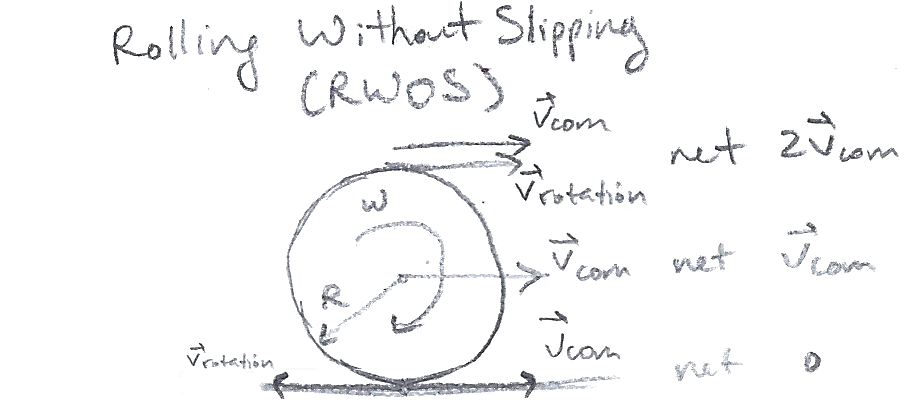 Rolling Without Slipping
(RWOS)
v⃗com
net 2v⃗com
v⃗rotation
ω
v⃗com net v⃗com
R
v⃗com
v⃗rotation
net 0